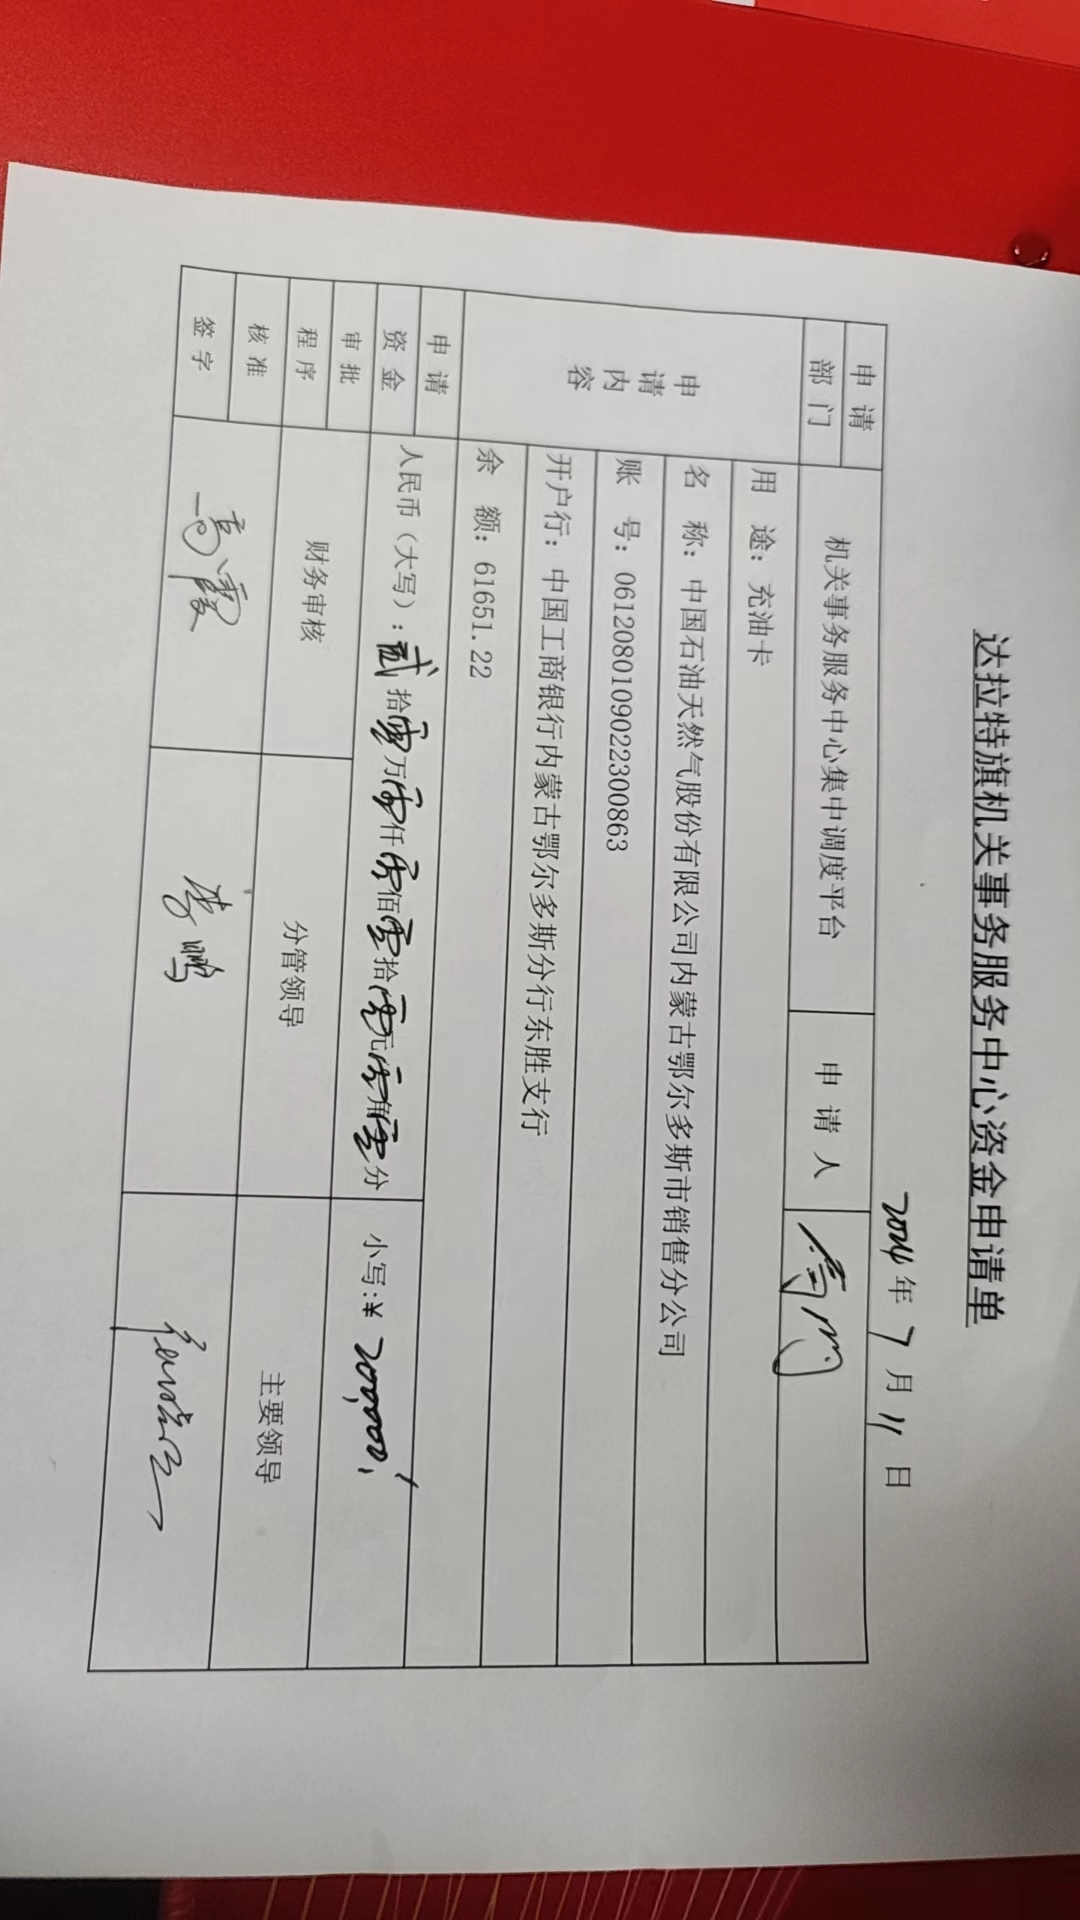 达拉特旗机关事务服务中心资金申请单
2024年7月11日
申请部门 机关事务服务中心集中调度平台 申请人
申请内容
用 途：充油卡
名 称：中国石油天然气股份有限公司内蒙古鄂尔多斯市销售分公司
账 号：0612080109022300863
开户行：中国工商银行内蒙古鄂尔多斯分行东胜支行
余 额：61651.22
申请资金 人民币（大写）：贰拾零万零仟零佰零拾零元零角零分 小写:¥ 200,000.
审批程序 财务审核 分管领导 主要领导
核准签字 高霞 李鹏